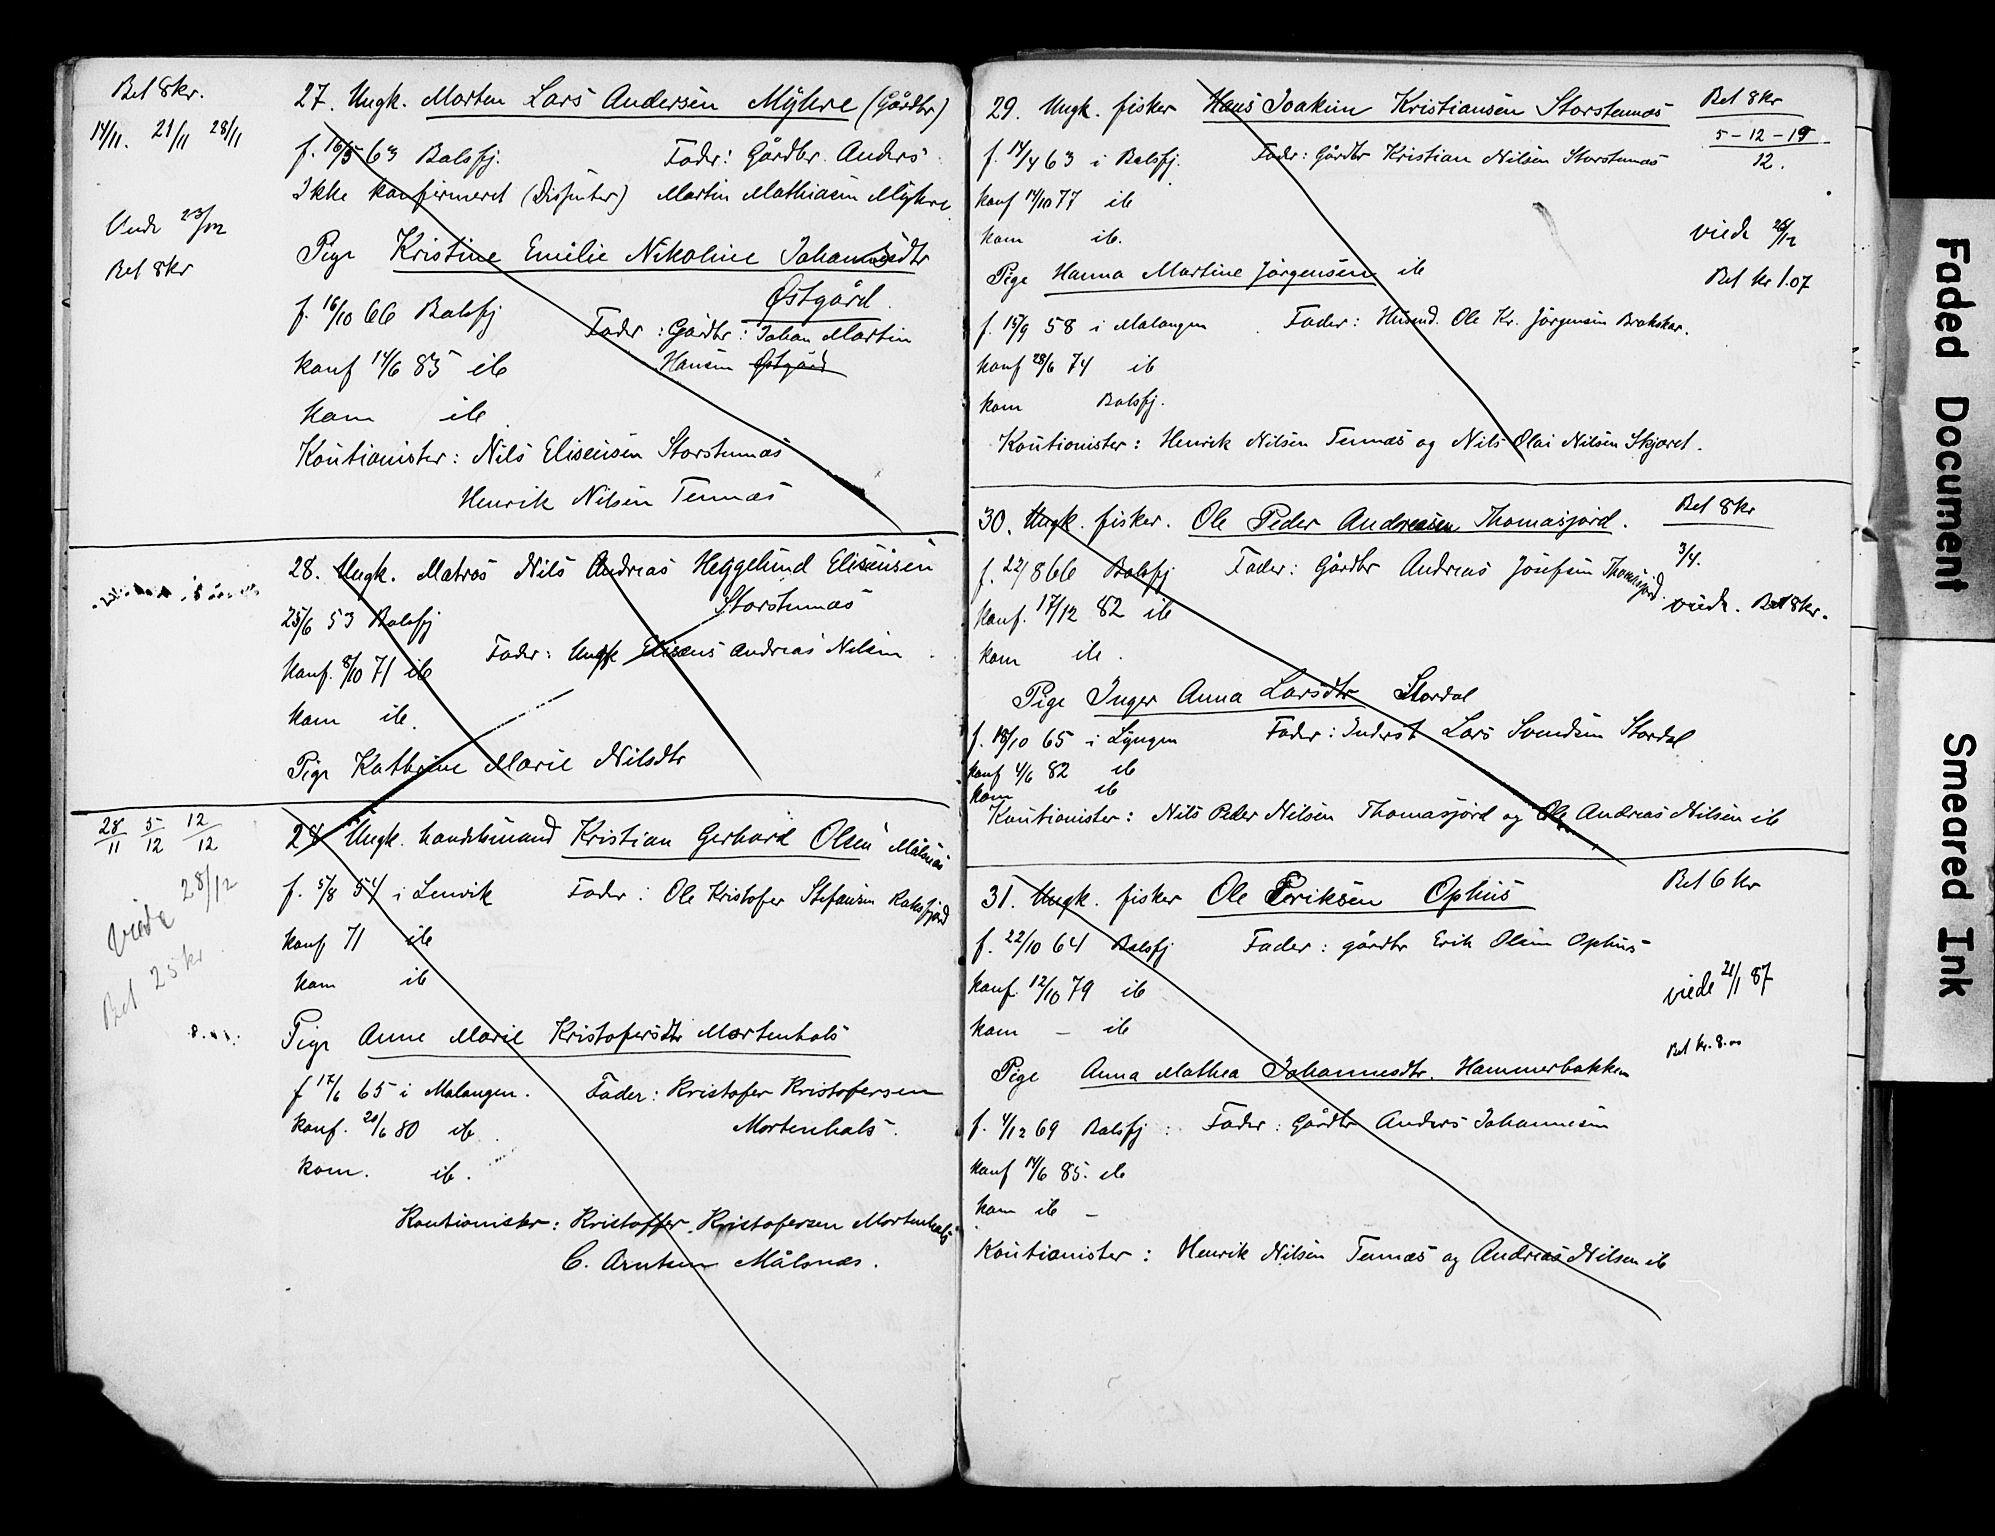 Bet 8kr.
14/11. 21/11 28/11
27. Ungk. Morten Lars Andersen Myhre (Gårdbr)
f. 16/5 63 Balsfj. Fader: Gårdbr. Anders
Ikke konfirmeret (Disinter) Martin Mathiasen Myhre
Viede 23/12
Bet 8kr
Pige Kristine Emilie Nikoline Johannesdtr
Østgård.
f. 16/10 66 Balsfj Fader: Gårdbr: Johan Martin
konf 14/6 83 ib Hansen Østgård
kom ib.
Kautionister: Nils Elisensen Storstennæs
Henrik Nilsen Tennæs
28. Ungk. Matros Nils Andreas Heggelund Elisensen
Storstennæs
25/6 53 Balsfj
Fader: Ungk Elisæus Andreas Nilsen.
konf. 8/10 71 ib
kom ib.
Pige Kathrine Marie Nilsdtr
28/11 5/12 12/12
28 Ungk. handelsmand Kristian Gerhard Olsen Målsnæs
f. 5/8 54 i Lenvik Fader: Ole Kristofer Stefansen Roksfjord
viede 28/12
Bet 25 kr
konf 71 ib
kom ib
Pige Anne Marie Kristofersdtr Mortenhals
f 17/6 65 i Malangen. Fader: Kristofer Kristofersen
konf. 20/6 80 ib. Mortenhals.
kom. ib.
Kautionister: Kristoffer Kristofersen Mortenhals
C. Arntsen Målsnæs.
29. Ungk. fisker Hans Joakim Kristiansen Storstennæs Bet 8kr
5-12-19
12.
f. 14/4 63 i Balsfj. Fader: Gårdbr Kristian Nilsen Storstennæs
konf 14/10 77 ib
kom ib. viede 26/12
Pige Hanna Martine Jørgensen ib Bet kr 1.07
f. 15/9 58 i Malangen. Fader: Husmd. Ole Kr. Jørgensen Brokskar.
konf 28/6 74 ib
kom Balsfj.
Kautionister: Henrik Nilsen Tennæs og Nils Olai Nilsen Skjæret.
30. Ungk. fisker. Ole Peder Andreasen Thomasjord. Bet 8kr
3/4.
f. 22/8 66 Balsfj Fader: Gårdbr Andreas Josefsen Thomasjord.
viede. Bet 8kr.
konf. 17/12 82 ib
kom ib.
Pige Inger Anna Larsdtr Stordal
f. 18/10 65 i Lyngen Fader: Inderst Lars Svendsen Stordal
konf 4/6 82 ib
kom ib
Kautionister: Nils Peder Nilsen Thomasjord og Ole Andreas Nilsen ib
31. Ungk. fisker Ole Eriksen Ophus Bet 6 kr
f. 22/10 64 Balsfj Fader: gårdbr Erik Olsen Ophus
konf. 12/10 79 ib viede 21/1 87
kom - ib
Bet kr. 8.00
Pige Anna Mathea Johannesdtr. Hammerbakken
f. 4/12 69 Balsfj: Fader: Gårdbr Anders Johannesen
konf 14/6 85. ib
kom ib -
Kautionister: Henrik Nilsen Tennæs og Andreas Nilsen ib
Faded Document
Smeared Ink